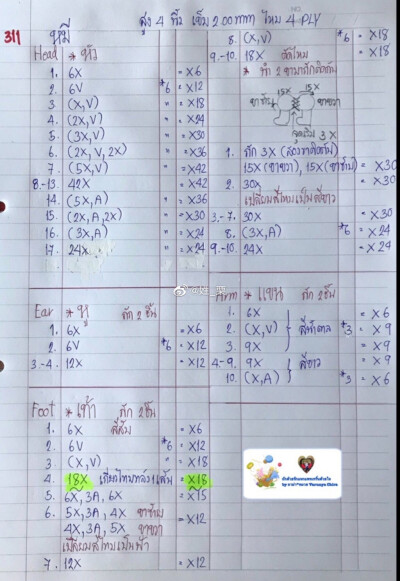 สูง 4 นิ้ว เข็ม 2.00 mm ไหม 4 PLY
311 หมี
Head * หัว
1. 6X = X6
2. 6V *6 = X12
3. (X,V) " = X18
4. (2X,V) " = X24
5. (3X,V) " = X30
6. (2X,V,2X) " = X36
7. (5X,V) " = X42
8.-13. 42X = X42
14. (5X,A) " = X36
15. (2X,A,2X) " = X30
16. (3X,A) " = X24
17. 24X = X24
Ear * หู ถัก 2 ชิ้น
1. 6X = X6
2. 6V *6 = X12
3.-4. 12X = X12
Foot * เท้า ถัก 2 ชิ้น
1. 6X สีส้ม = X6
2. 6V *6 = X12
3. (X,V) " = X18
4. 18X เกี่ยวไหมหลัง 1 เส้น = X18
5. 6X, 3A, 6X = X15
6. 5X, 3A, 4X ขาซ้าย = X12
4X, 3A, 5X ขาขวา
เปลี่ยนสีไหมเป็นฟ้า
7. 12X = X12
8. (X,V) *6 = X18
9.-10. 18X ตัดไหม = X18
* ทำ 2 ขามาถักติดกัน
15X 15X
ขาซ้าย ขาขวา
จุดเริ่ม 3X
1. ถัก 3X (สองขาติดกัน)
15X (ขาขวา), 15X (ขาซ้าย) = X30
2. 30X = X30
เปลี่ยนสีไหมเป็นสีขาว
3.-7. 30X = X30
8. (3X,A) *6 = X24
9.-10. 24X = X24
Arm * แขน ถัก 2 ชิ้น
1. 6X = X6
2. (X,V) สีน้ำตาล *3 = X9
3. 9X = X9
4-9. 9X สีขาว = X9
10. (X,A) *3 = X6